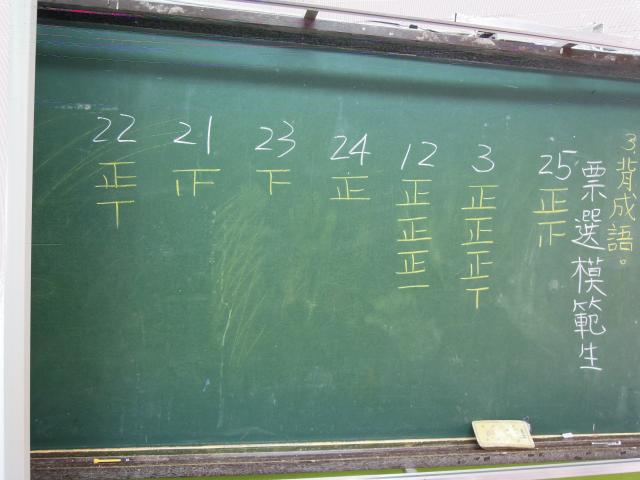 3.背成語。
票選模範生
22 21 23 24 12 3 25
正 下 正 正 正 正
丅 正 正
正 正
一 丅